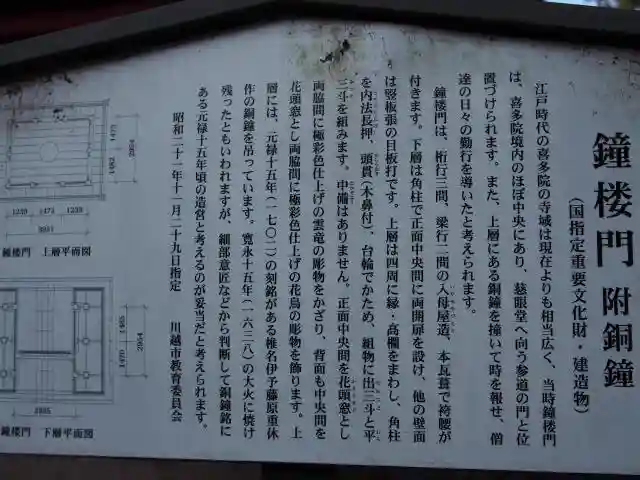 鐘楼門 附銅鐘
（国指定重要文化財・建造物）
江戸時代の喜多院の寺域は現在よりも相当広く、当時鐘楼門
は、喜多院境内のほぼ中央にあり、慈眼堂へ向う参道の門と位
置づけられます。また、上層にある銅鐘を撞いて時を報せ、僧
達の日々の勤行を導いたと考えられます。
鐘楼門は、桁行三間、梁行二間の入母屋造、本瓦葺で袴腰が
付きます。下層は角柱で正面中央間に両開扉を設け、他の壁面
は竪板張の目板打です。上層は四周に縁・高欄をまわし、角柱
を内法長押、頭貫（木鼻付）、台輪でかため、組物に出三斗と平
三斗を組みます。中備はありません。正面中央間を花頭窓とし
両脇間に極彩色仕上げの雲竜の彫物をかざり、背面も中央間を
花頭窓とし両脇間に極彩色仕上げの花鳥の彫物を飾ります。上
層には、元禄十五年（一七〇二）の刻銘がある椎名伊予藤原重休
作の銅鐘を吊っています。寛永十五年（一六三八）の大火に焼け
残ったともいわれますが、細部意匠などから判断して銅鐘銘に
ある元禄十五年頃の造営と考えるのが妥当だと考えられます。
昭和二十一年十一月二十九日指定 川越市教育委員会
鐘楼門 上層平面図
鐘楼門 下層平面図